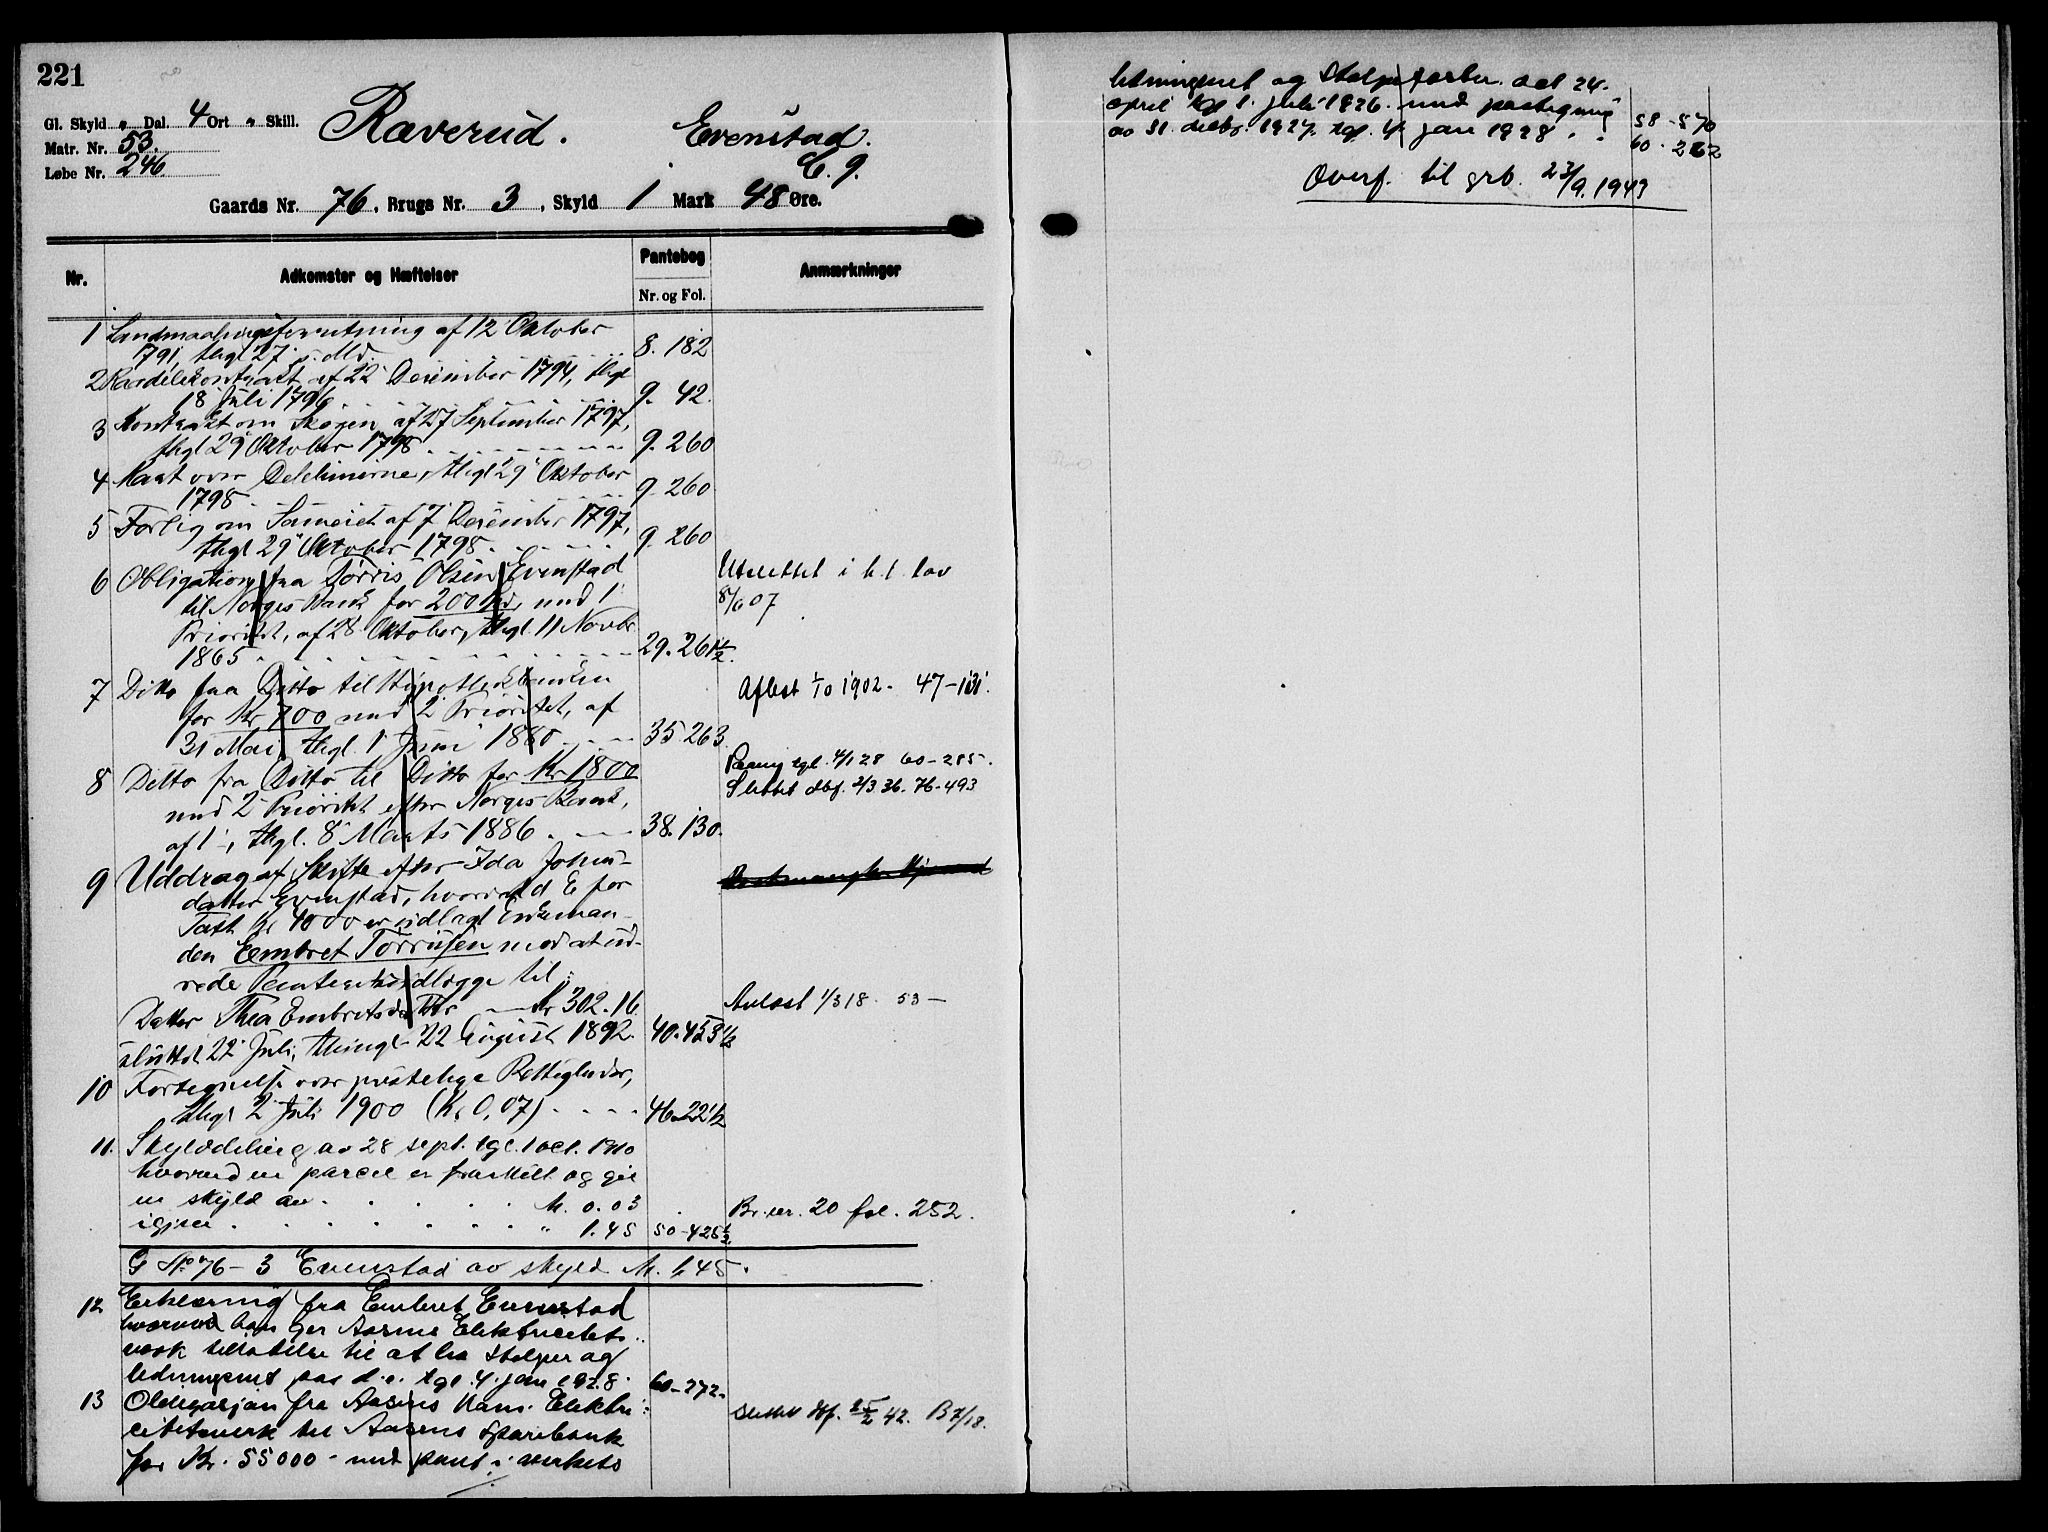 221
Gl. Skyld „ Dal. 4 Ort „ Skill.
Matr. Nr. 53.
Løbe Nr. 246.
Raverud. Evenstad.
Gaards Nr. 76, Brugs Nr. 3, Skyld 1 Mark 48 Øre.
Nr. Adkomster og Hæftelser Pantebog Anmærkninger
Nr. og Fol.
1 Landmaalingsforretning af 12 Oktober
1791, thgl 27 s. Md. 8. 182
2 Kontrakt af 22 December 1794, thgl
18 Juli 1796 9. 42.
3 Kontrakt om Skogen af 27 September 1797,
thgl 29 Oktober 1798 9. 260
4 Kart over Delelinierne, thgl 29 Oktober
1798 9. 260
5 Forlig om Sameiet af 7 December 1797,
thgl 29 Oktober 1798 9. 260
6 Obligation fra Torris Olsen Evenstad
til Norges Bank for 200 Spd, med 1
Prioritet, af 28 Oktober, thgl. 11 Novbr
1865 29. 261 1/2.
Utslettet i h.t. lov
8/6 07
7 Ditto fra Ditto til Hypothekbanken
for Kr 700 med 2 Prioritet, af
31 Mai, thgl. 1 Juni 1880 35 263.
Aflæst 1/10 1902. 47-131.
8 Ditto fra Ditto til Ditto for Kr 1800
med 2 Prioritet efter Norges Bank,
af 1, thgl. 8 Marts 1886 38. 130.
tgl. 4/1 28 60-285.
Slettet dbf. 2/3 36. 76-493
9 Uddrag af Skifte efter Ida Johns-
datter Evenstad, hvorved E for
Taxt Kr 4000 er udlagt Enkeman-
den Eembret Torrisen mod at ud-
rede Panteudlægge til:
Datter Thea Embretsdatter Kr 302.16
sluttet 22 Juli, thingl 22 August 1892. 40. 453 1/2
Avlæst 1/3 18. 53-
10 Fortegnelse over prestelige Rettigheder,
thgl 2 Juli 1900 (Kr 0,07) 46-221 1/2
11. Skylddeling av 28 sept. tgl. 1 oct. 1910
hvorved en parcel er fraskilt og git
en skyld av M. 0.03 Br. nr. 20 fol. 252.
igjen " 1.45 50-425 1/2
G No 76-3 Evenstad av skyld M. 1.45.
12 Erklæring fra Embret Evenstad
hvorved han gir Aasens Elektricitets-
verk tillatelse til at ha stolper og
ledningsnet paa d.e. tgl. 4. jan 1928. 60-272.
13 Obligasjon fra Aasens Kom. Elektri-
citetsverk til Aasens Sparebank
for Kr. 55000 - med pant i verkets
Slettet dbf. 25/2 42. B 7/18.
ledningsnet og Stolpe dat 24.
april tgl 1. juli 1926 med paategning
av 31. decbr. 1927. tgl. 4. jan 1928. 58-570
60-262
Overf. til grb. 23/9. 1943